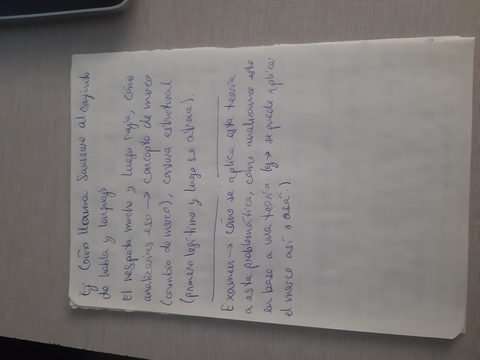 Ej: Cómo llama Saussure al conjunto
de habla y lenguaje
El respeta mucho y luego, cómo
analizarías eso → concepto de marco
(cambio de marco), estructural
(primero legítimo y luego se).
Examen → cómo se aplica esta teoría
a esta problemática, cómo analizamos esto
en base a una teoría. (Ej → se puede aplicar
el marco así o asá.)